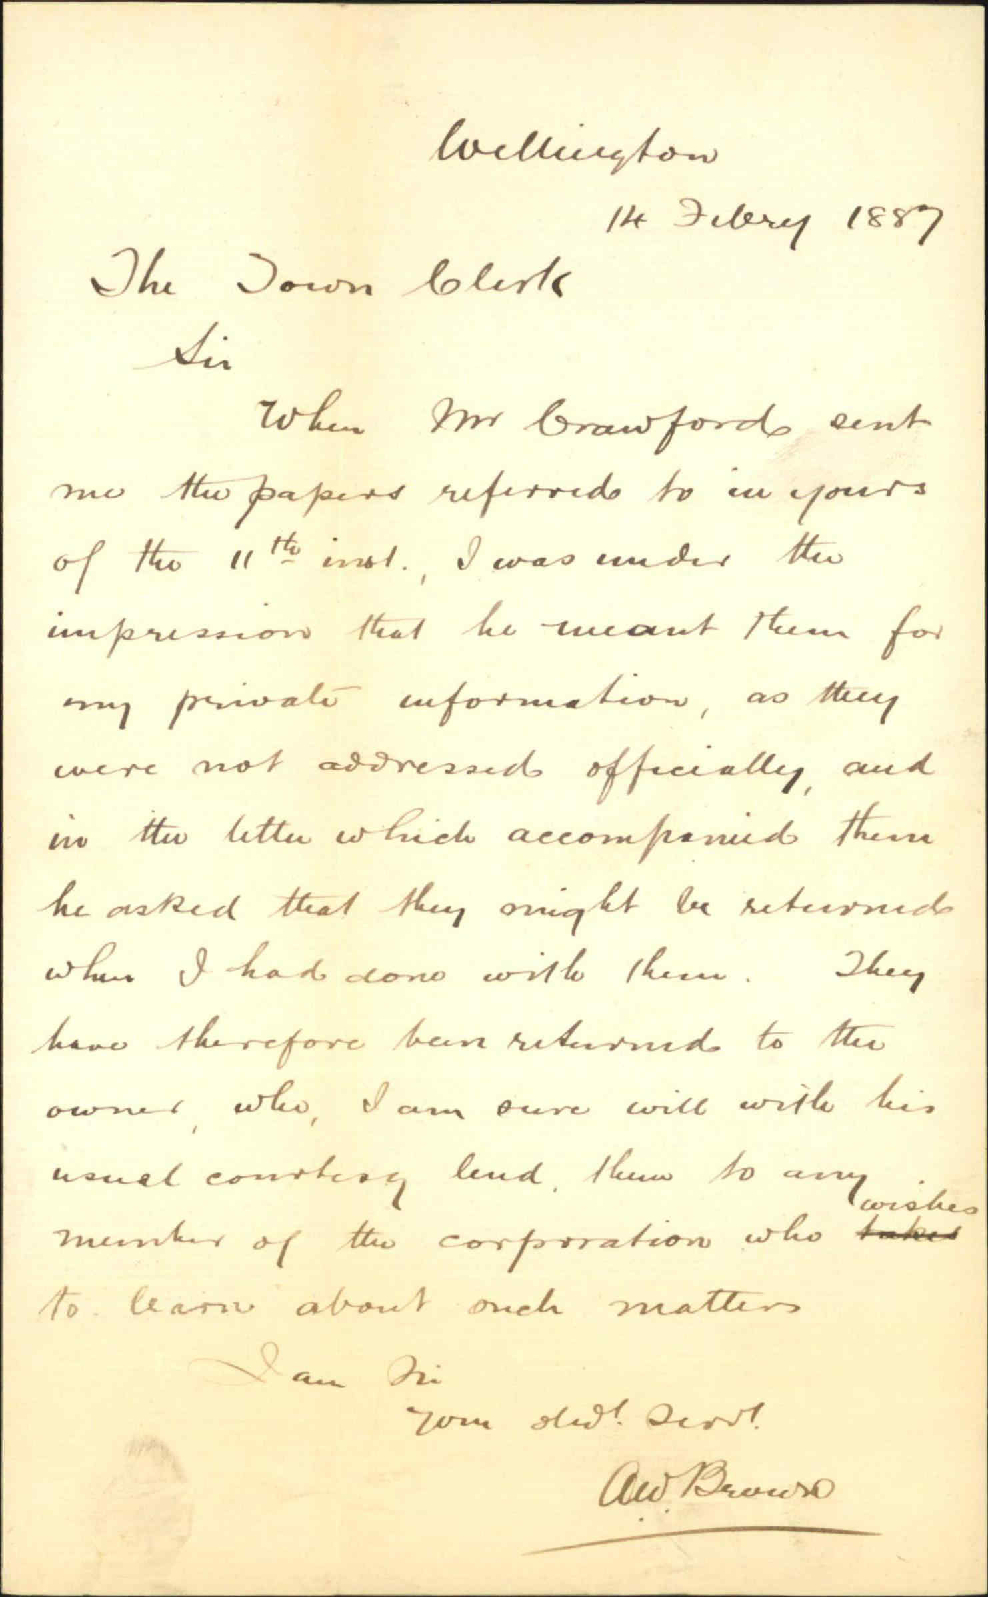 Wellington
14 Febry 1887
The Town Clerk
Sir
When Mr Crawford sent
me the papers referred to in yours
of the 11th inst., I was under the
impression that he meant them for
my private information, as they
were not addressed officially, and
in the letter which accompanied them
he asked that they might be returned
when I had done with them. They
have therefore been returned to the
owner, who, I am sure will with his
usual courtesy lend them to any
member of the corporation who takes wishes
to learn about such matters
I am Sir
Your obdt. Servt.
A.W. Brown